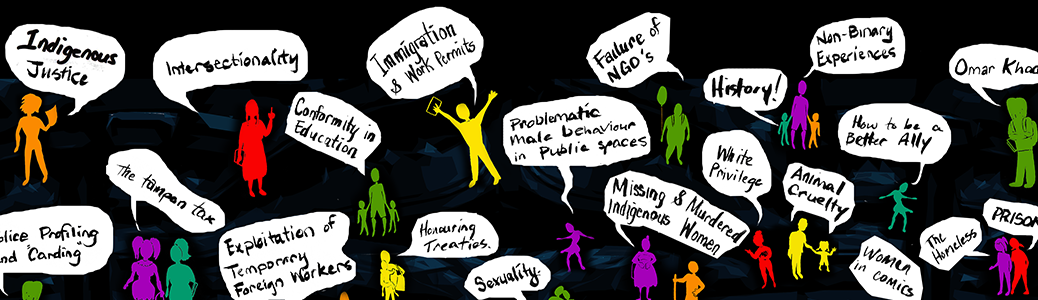 Indigenous
Justice
Intersectionality
Immigration
& Work Permits
Failure of
NGO's
Non-Binary
Experiences
Omar Khad
History!
Conformity in
Education
Problematic
male behaviour
in Public spaces
How to be a
Better Ally
White
Privilege
The tampon tax
Missing & Murdered
Indigenous Women
Animal
Cruelty
olice Profiling
nd "Carding"
Exploitation of
Temporary
Foreign Workers
Honouring
Treaties.
Sexuality
Women
in comics
The
Homeless
PRISON